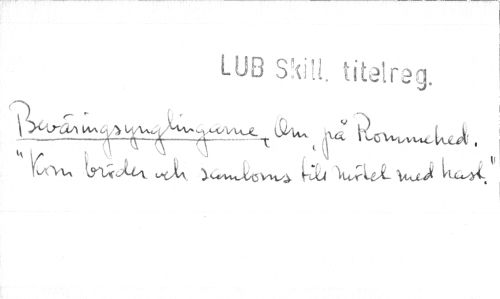 LUB Skill. titelreg.
Beväringsynglingarne, Om, på Rommehed.
"Kom bröder och samloms till mötet med hast."